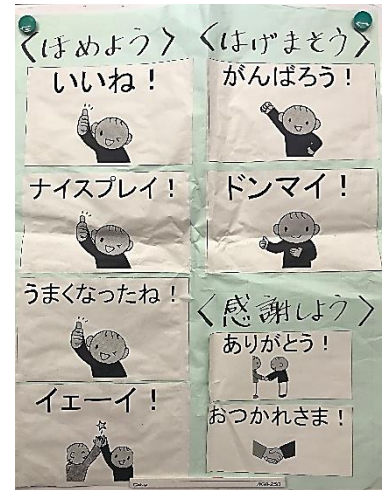 〈ほめよう〉
いいね!
ナイスプレイ!
うまくなったね!
イェーイ!
〈はげまそう〉
がんばろう!
ドンマイ!
〈感謝しよう〉
ありがとう!
おつかれさま!